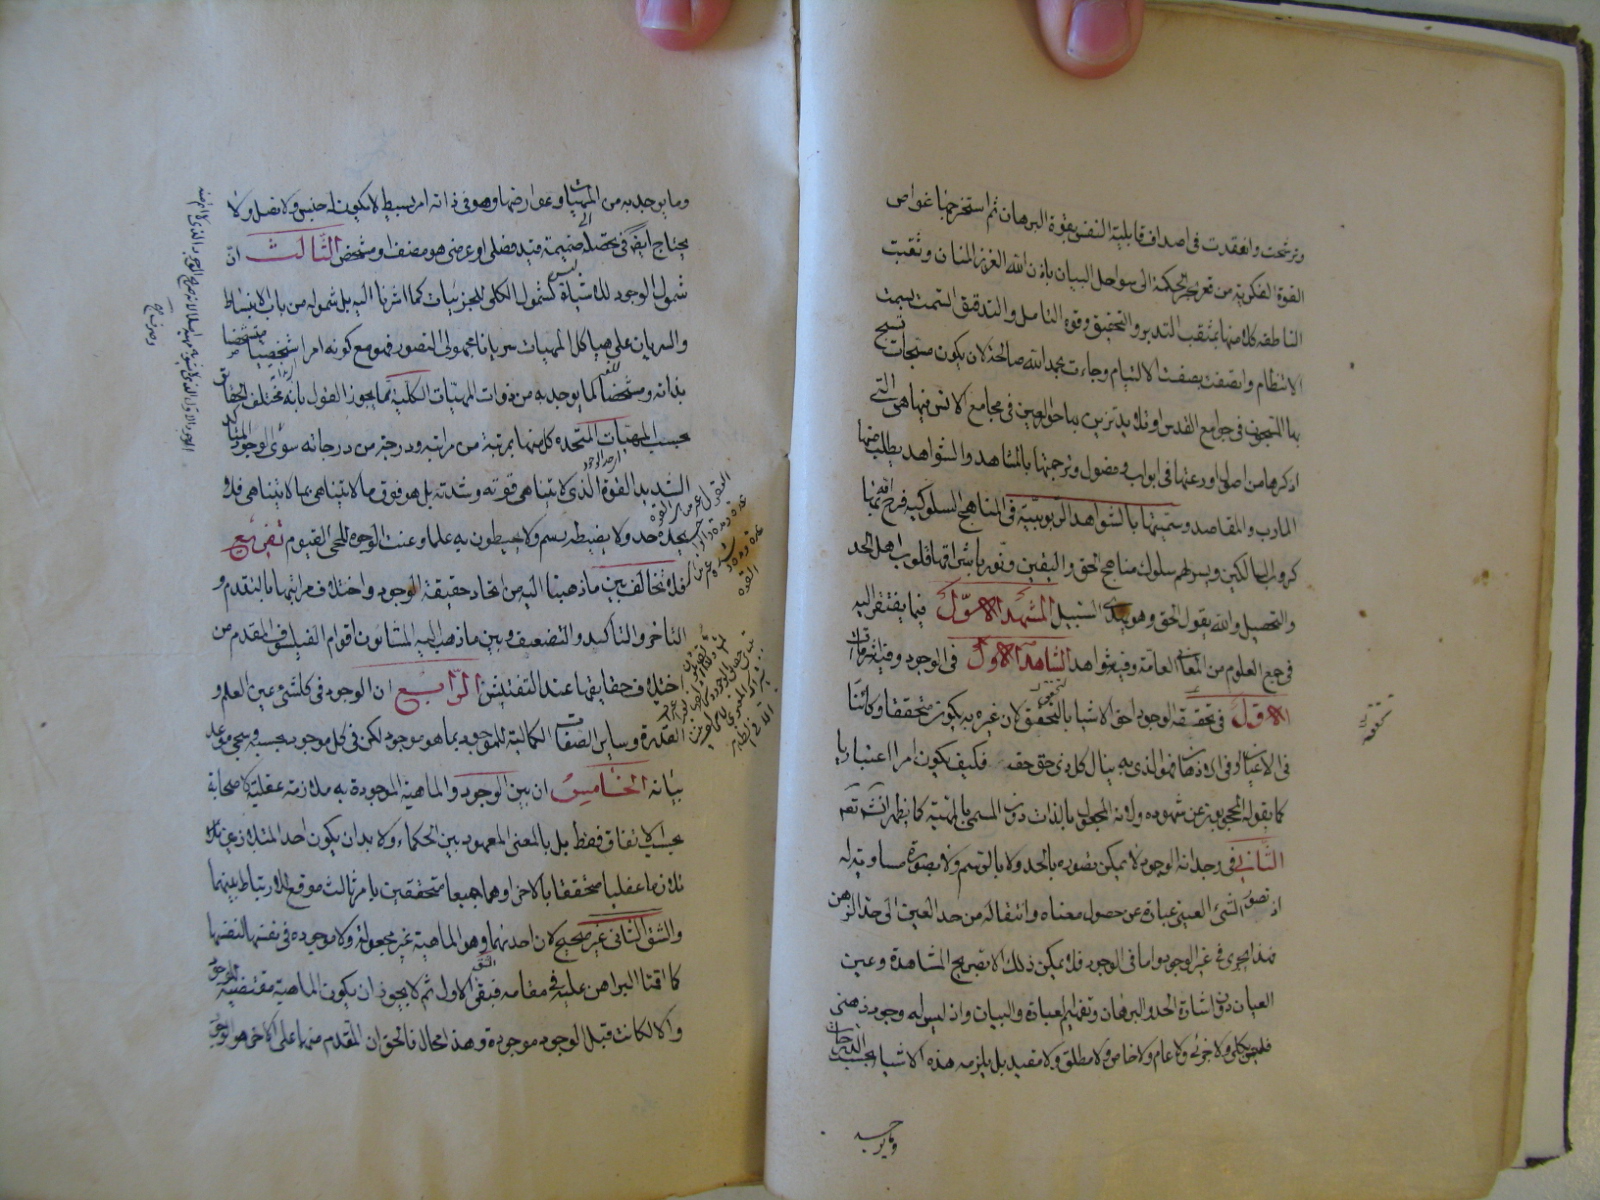 وترشحت وانعقدت فى اصداف قابلية النفس بقوة البرهان ثم استخرجها غواص
القوة الفكرية من قعر بحر الحكمة الى سواحل البيان باذن الله العزيز المنان وثقبت
الناطقه كلا منها بمثقب التدبر والتحقيق وقوة التامل والتدقيق اتسمت بسمت
الانتظام واتصفت بصفت الالتيام وجاءت بحمد الله صالحة لان يكون مسبحات تسبح
بها المتهجدون فى جوامع القدس او قلايد تزين بها حور العين فى مجامع الانس فها هى التى
اذكرها من اصلى اودعتها فى ابواب وفصول وترجمتها بالمشاهد والشواهد يطلب منها
المارب والمقاصد وسميتها بالشواهد الربوبية فى المناهج السلوكية
السالكين ويسر لهم سلوك مناهج الحق واليقين ونور باشراقها قلوب اهل الجد
والتحصيل والله يقول الحق وهو يهدى السبيل المشهد الاول فيما يفتقر اليه
فى جميع العلوم من المعانى العامة وفيه شواهد الشاهد الاول فى الوجود وفيه اشراقات
الاول فى تحققه الوجود احق الاشياء بالتحقق لان غيره به يكون متحققا وكائنا
فى الاعيان او فى الاذهان فهو الذى به ينال كل ذى حق حقه فكيف يكون امرا اعتباريا
كما يقوله المحجوبون عن شهوده ولانه المجعول بالذات دون المسمى بالمهية كما يظهر انشاء تعم
الثانى فى وجدانه الوجود لا يمكن تصوره بالحد ولا بالرسم ولا بصورة مساوية له
اذ تصور الشئ العينى عبارة عن حصول معناه وانتقاله من حد العين الى حد الذهن
فهذا يجرى فى غير الوجود واما فى الوجود فلا يمكن ذلك الا بصريح المشاهدة وعين
العيان دون اشارة الحد والبرهان وتفهيم العبارة والبيان واذ ليس له وجود ذهنى
فليس بكلى ولا جزئى ولا عام ولا خاص ولا مطلق ولا مقيد بل يلزمه هذه الاشياء بحسب الدرجات
وما يوجد
وما يوجد به من المهيات وعوارضها وهو فى ذاته امر بسيط لا يكون له جنس ولا فصل ولا
يحتاج ايضا فى تحصله الى ضميمة قيد فصلى او عرضى هو مصنف او مشخص الثالث ان
شمول الوجود للاشياء ليس كشمول الكلى للجزئيات كما اشرنا اليه بل شموله من باب الانبساط
والسريان على هياكل المهيات سريانا مجهول التصور فهو مع كونه امرا شخصيا متشخصا
بذاته ومشخصا لما يوجد به من ذوات المهيات الكلية مما يجوز القول بانه مختلف الحقائق
بحسب المهيات المتحده كل منها بمرتبة من مراتبه ودرجة من درجاته سوى الوجود
الشديد القوة الذى لا يتناهى قوته وشدته بل هو فوق ما لا يتناهى بما لا يتناهى فلا
يحده حد ولا يضبطه رسم ولا يحيطون به علما وعنت الوجوه للحى القيوم تفريع
فلا تخالف بين ما ذهبنا اليه من اتحاد حقيقة الوجود واختلاف مراتبها بالتقدم و
التاخر والتاكيد والتضعيف وبين ما ذهب اليه المشائون اقوام الفيلسوف المقدم من
اختلاف حقايقها عند التفتيش الرابع ان الوجود فى كل شئ عين العلم و
القدرة وساير الصفات الكمالية للموجود بما هو موجود لكن فى كل موجود بحسبه وسيجئ موعد
بيانه الخامس ان بين الوجود والماهية الموجودة به ملازمة عقلية لا صحابة
بحسب الاتفاق فقط بل بالمعنى المعهود بين الحكماء ولا بد ان يكون احد المتلازمين
تلازما عقليا متحققا بالاخر او هما جميعا متحققين بامر ثالث موقع للارتباط بينهما
والشق الثانى غير صحيح لان احد بهما وهو الماهية غير مجعولة ولا موجوده فى نفسها لنفسها
كما اقمنا البراهين عليه فى مقامه فبقى الشق الاول ثم لا يجوز ان يكون الماهية مقتضية للوجود
والا لكانت قبل الوجود موجودة وهذا محال فالحق ان المقدم منهما على الاخر هو الوجود